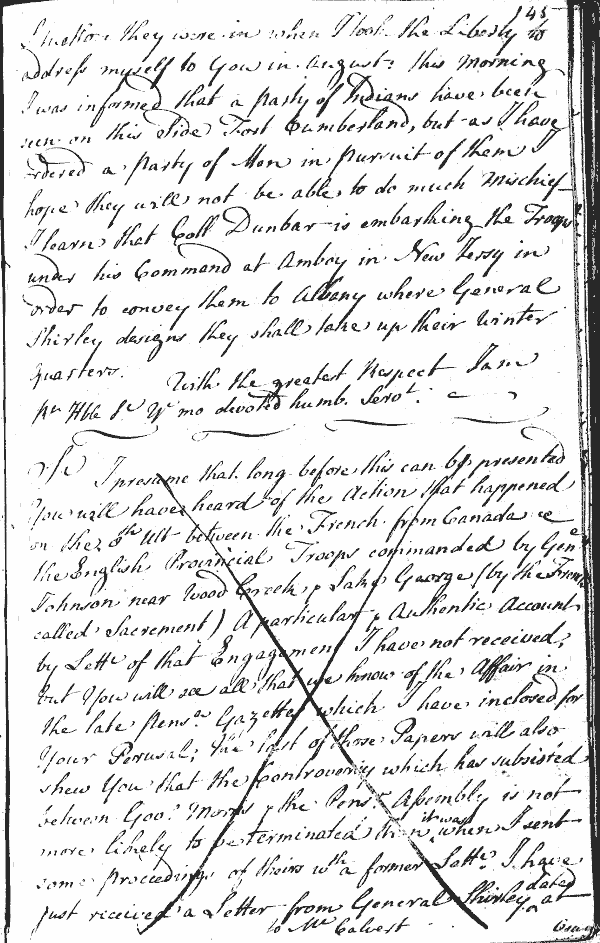 145
they were in when I took the Liberty to
address myself to You in August: this Morning
I was informed that a party of Indians have been
seen on this Side Fort Cumberland, but as I have
ordered a party of Men in pursuit of them I
hope they will not be able to do much Mischief
I learn that Coll Dunbar is embarking the Troops
under his Command at Amboy in New Jersy in
order to convey them to Albany where General
Shirley designs they shall take up their Winter
Quarters. With the greatest Respect I am
Rt Hble Sr Yr mo devoted humb. Servt.
Sr I presume that long before this can be presented
You will have heard of the Action that happened
on the 8th Ult between the French from Canada &
the English Provincial Troops commanded by Genl
Johnson near Wood Creek & Lake George (by the French
called Sacrement) A particular & Authentic Account
by Lettr of that Engagement I have not received,
but You will see all that we know of the Affair in
the late Pensa Gazettes which I have inclosed for
Your Perusal; the last of those Papers will also
shew You that the Controversy which has subsisted
between Govr Morris & the Pensa Assembly is not
more likely to be terminated than it was when I sent
some proceedings of theirs wth a former Lettr. I have
just received a Letter from General Shirley dated at
to Mr Calvert